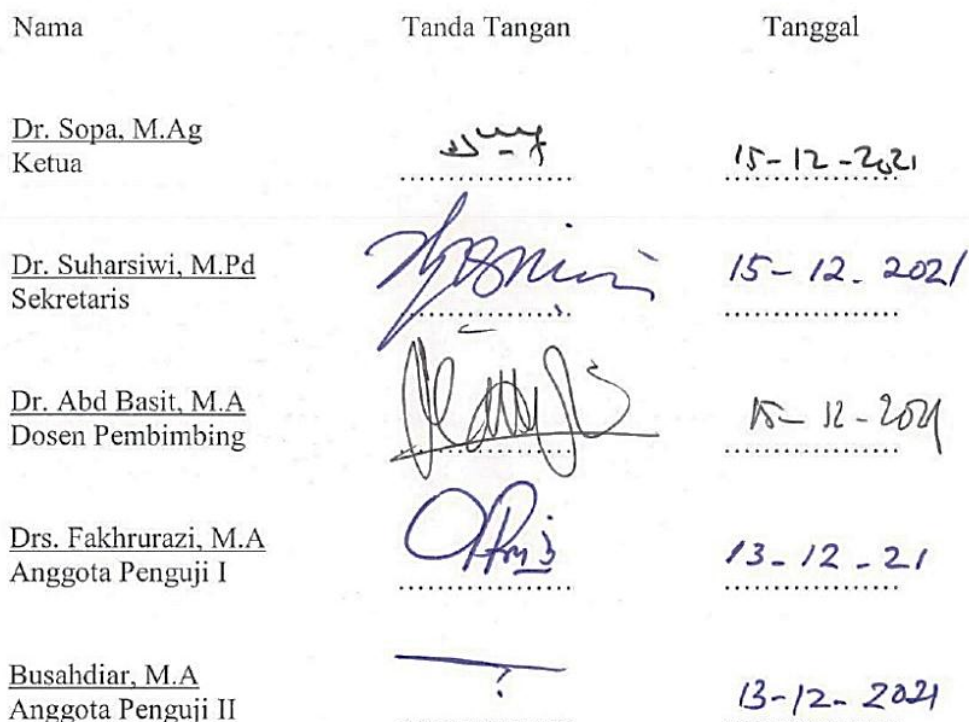 Nama Tanda Tangan Tanggal
Dr. Sopa, M.Ag
Ketua
15-12-2021
Dr. Suharsiwi, M.Pd
Sekretaris
15-12-2021
Dr. Abd Basit, M.A
Dosen Pembimbing
15-12-2021
Drs. Fakhrurazi, M.A
Anggota Penguji I
13-12-21
Busahdiar, M.A
Anggota Penguji II
13-12-2021